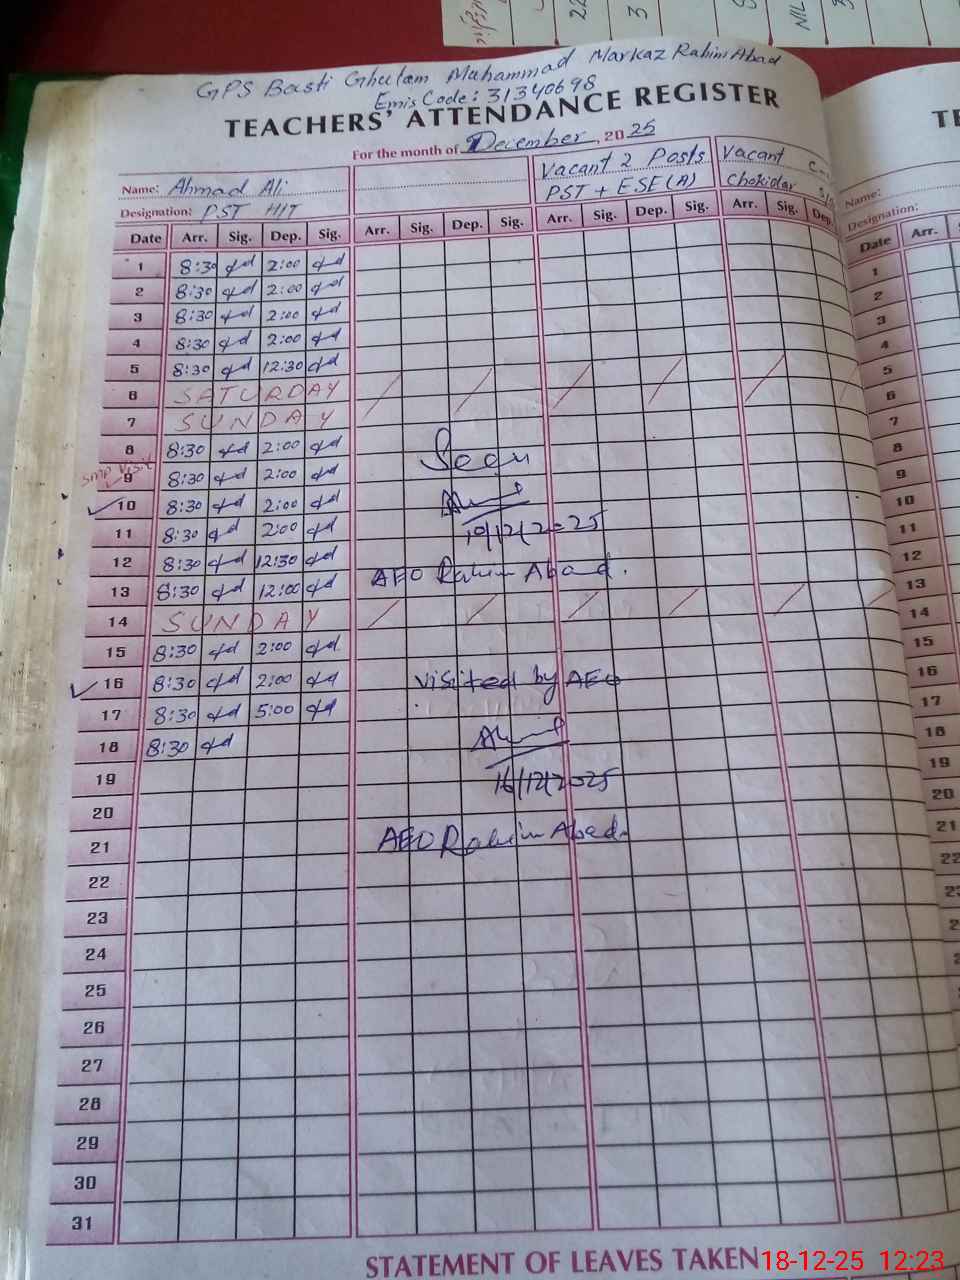 GPS Basti Ghulam Muhammad Markaz Rahim Abad
Emis Code: 31340698
TEACHERS' ATTENDANCE REGISTER
For the month of December, 2025
Name: Ahmad Ali Vacant 2 Posts Vacant
PST + ESE(A) Chokidar
Designation: PST HIT
Date Arr. Sig. Dep. Sig. Arr. Sig. Dep. Sig. Arr. Sig. Dep. Sig. Arr. Sig. Dep.
1 8:30 2:00
2 8:30 2:00
3 8:30 2:00
4 8:30 2:00
5 8:30 12:30
6 SATURDAY
7 SUNDAY
8 8:30 2:00
visit
9 8:30 2:00
10 8:30 2:00
11 8:30 2:00
10/12/2025
12 8:30 12:30
13 8:30 12:00
AEO Rahim Abad.
14 SUNDAY
15 8:30 2:00
16 8:30 2:00 visited by AEO
17 8:30 5:00
18 8:30
19
16/12/2025
20
21
AEO Rahim Abad.
22
23
24
25
26
27
28
29
30
31
STATEMENT OF LEAVES TAKEN
18-12-25 12:23
Name:
Designation:
Date Arr.
1
2
3
4
5
6
7
8
9
10
11
12
13
14
15
16
17
18
19
20
21
22